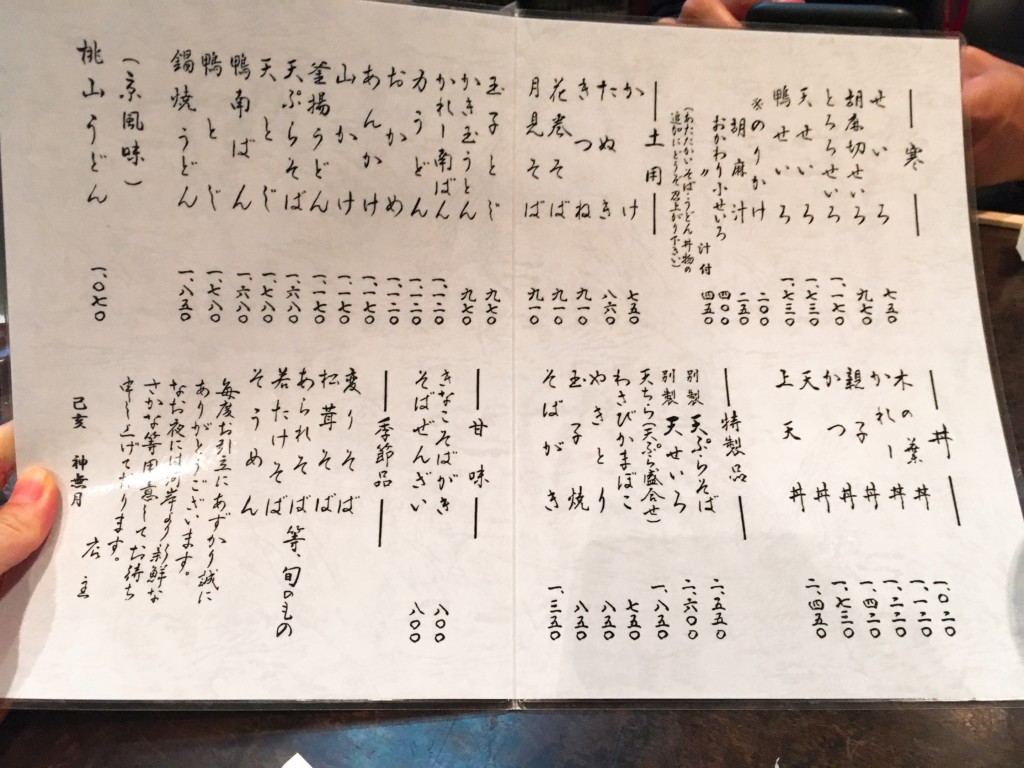 寒
せいろ 七五〇
胡麻切せいろ 九七〇
とろろせいろ 一、一七〇
天せいろ 一、七三〇
鴨せいろ 一、七三〇
※のりかけ 二〇〇
胡麻汁 二五〇
おかわり小せいろ 四〇〇
〃 汁付 四五〇
(あたたかいそば・うどん丼物の
追加にどうぞ召上がり下さい)
土用
かけ 七五〇
たぬき 八六〇
きつね 九一〇
花巻そば 九一〇
月見そば 九一〇
玉子とじ 九七〇
かき玉うとん 九七〇
かれー南ばん 一、一二〇
力うどん 一、一二〇
おかめ 一、一二〇
あんかけ 一、一七〇
山かけ 一、一七〇
釜揚うどん 一、一七〇
天ぷらそば 一、六八〇
天とじ 一、七八〇
鴨南ばん 一、六八〇
鴨とじ 一、七八〇
鍋焼うどん 一、八五〇
(京風味)
桃山うどん 一、〇七〇
丼
木の葉丼 一、〇二〇
かれー丼 一、一二〇
親子丼 一、二二〇
かつ丼 一、四二〇
天丼 一、七三〇
上天丼 二、四五〇
特製品
別製 天ぷらそば 二、五五〇
別製 天せいろ 二、六〇〇
天ちら(天ぷら盛合せ) 一、八五〇
わさびかまぼこ 七五〇
やきとり 八五〇
玉子焼 八五〇
そばがき 一、三五〇
甘味
きなこそばがき 八〇〇
そばぜんざい 八〇〇
季節品
変りそば
松茸そば
あられそば
若たけそば
そうめん
等、旬のもの
毎度お引立にあずかり誠に
ありがとうございます。
なお夜には河岸より新鮮な
さかな等用意してお待ち
申し上げております。
店主
己亥 神無月